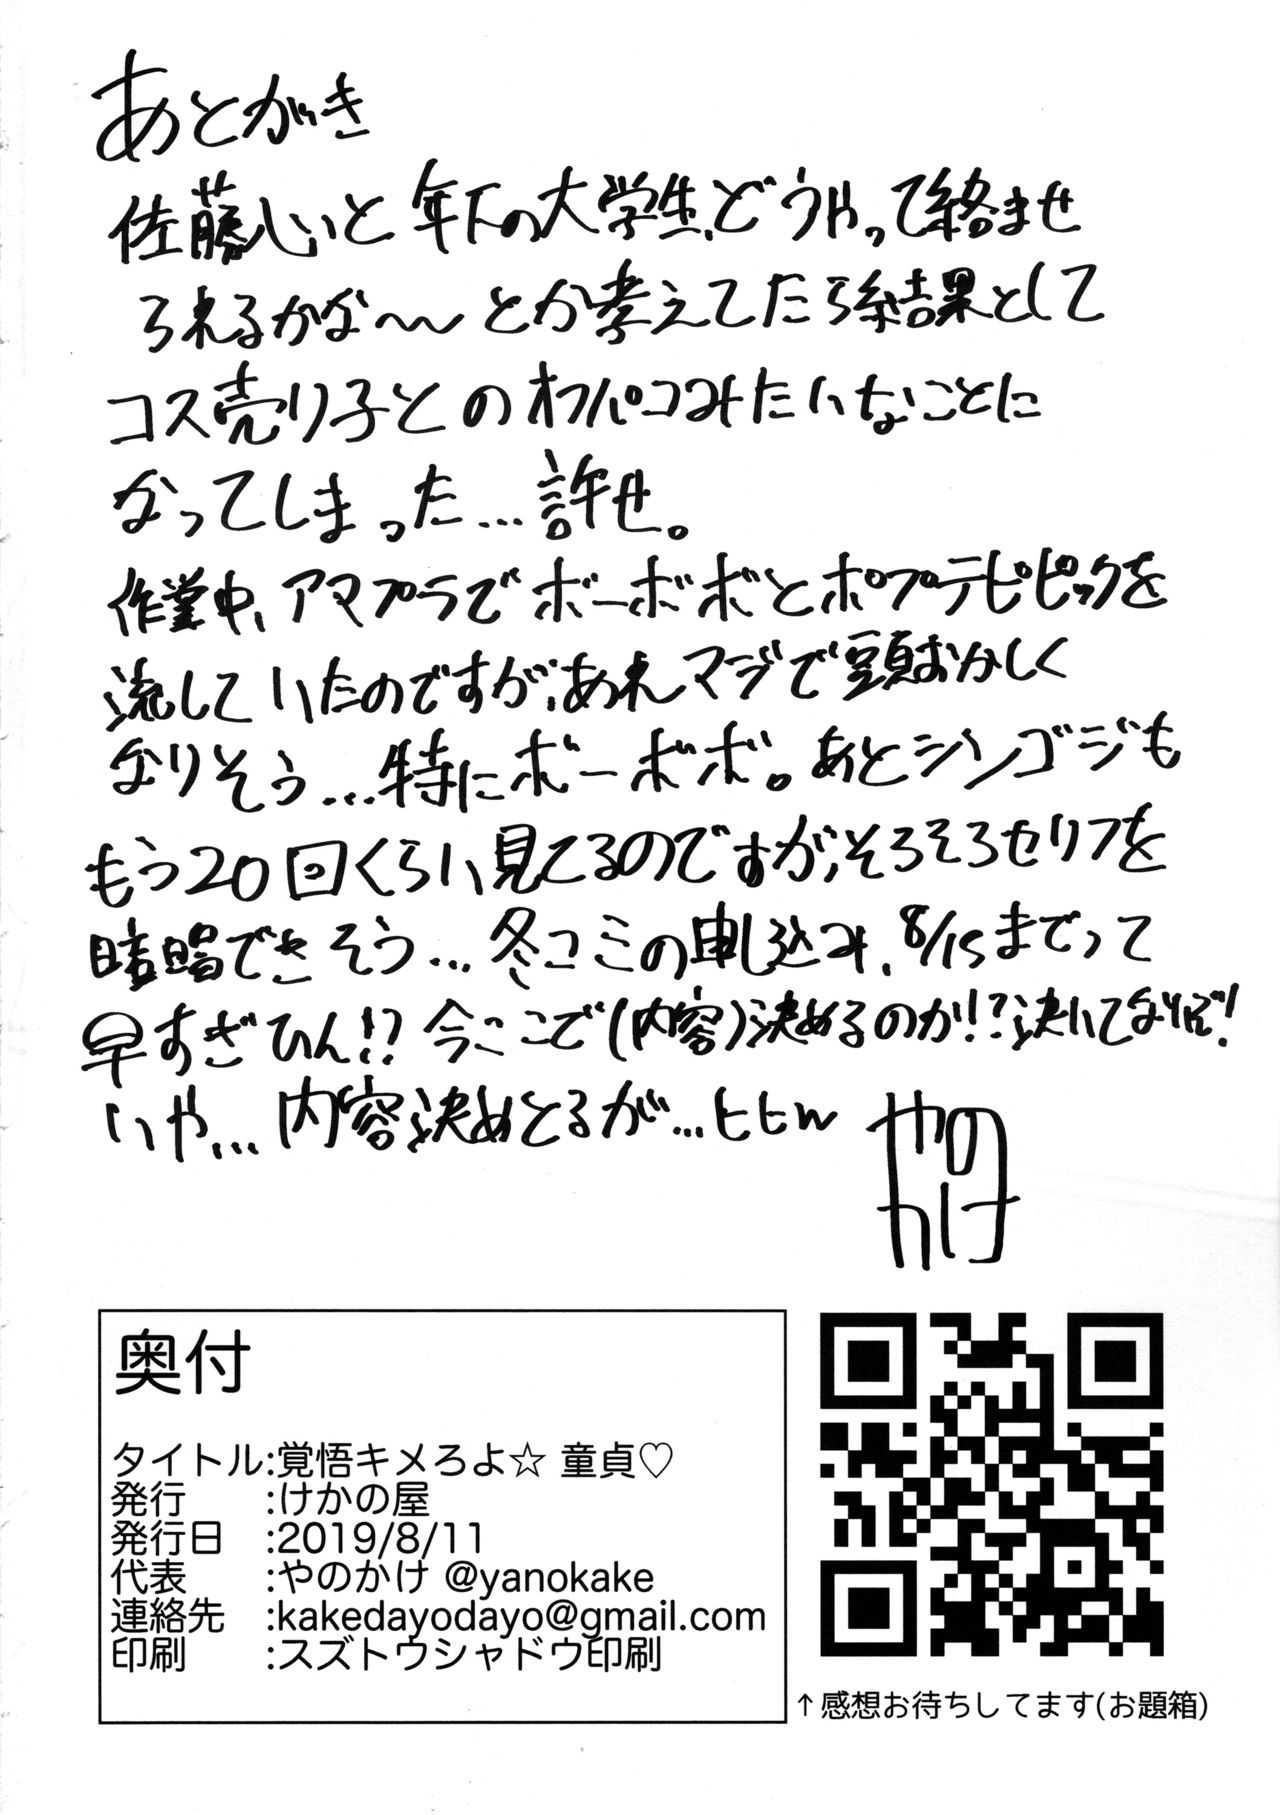 あとがき
佐藤しいと年下の大学生、どうやって絡ませ
られるかな〜〜とか考えてたら結果として
コス売り子とのオフパコみたいなことに
なってしまった…許せ。
作業中、アマプラでボーボボとポプテピピックを
流していたのですが、あれマジで頭おかしく
なりそう…特にボーボボ。あとシンゴジも
もう20回くらい見てるのですが、そろそろセリフを
暗唱できそう…冬コミの申し込み、8/15までって
早すぎひん!?今ここで(内容)決めるのか!?決
いや…内容決めとるが…ヒヒん
やの
かけ
奥付
タイトル:覚悟キメろよ☆ 童貞♡
発行 :けかの屋
発行日 :2019/8/11
代表 :やのかけ @yanokake
連絡先 :kakedayodayo@gmail.com
印刷 :スズトウシャドウ印刷
↑感想お待ちしてます(お題箱)